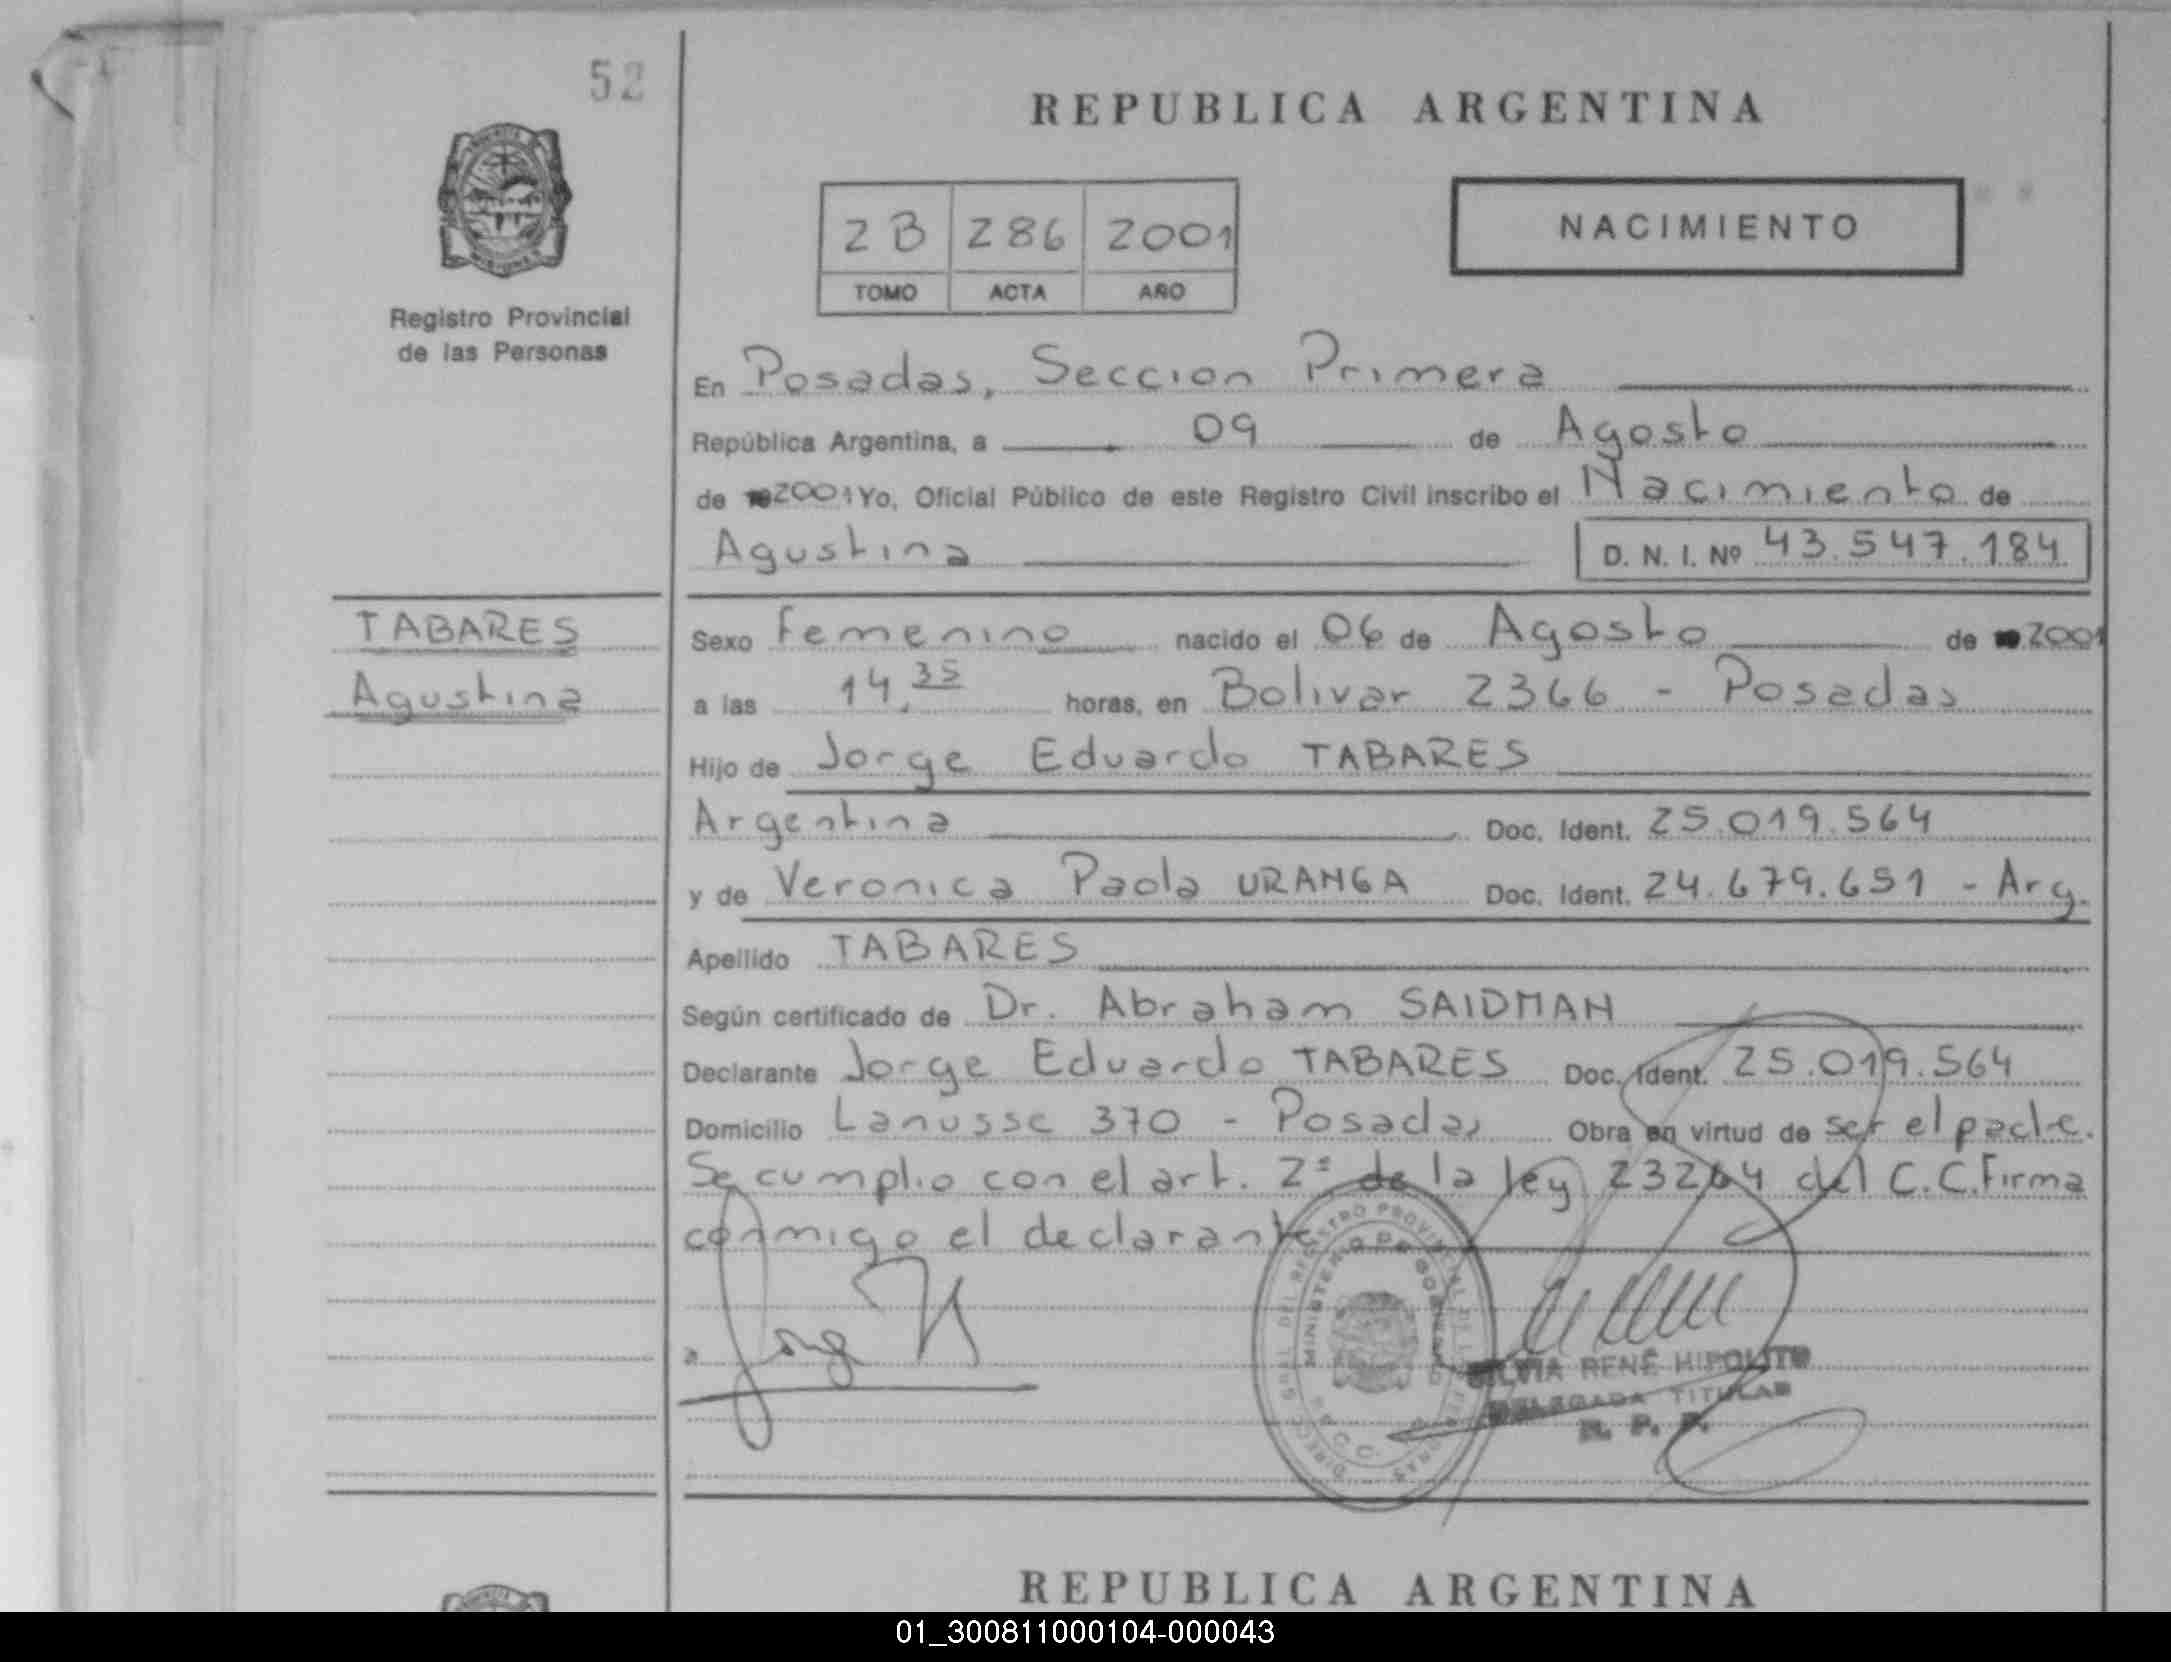 52
REPUBLICA ARGENTINA
2B 286 2001
TOMO ACTA AÑO
NACIMIENTO
Registro Provincial
de las Personas
En Posadas, Seccion Primera
República Argentina, a 09 de Agosto
de 2001 Yo, Oficial Público de este Registro Civil inscribo el Nacimiento de
Agustina D. N. I. Nº 43.547.184
TABARES
Agustina
Sexo Femenino nacido el 06 de Agosto de 2001
a las 14,35 horas, en Bolivar 2366 - Posadas
Hijo de Jorge Eduardo TABARES
Argentina Doc. Ident. 25.019.564
y de Veronica Paola URANGA Doc. Ident. 24.679.651 - Arg.
Apellido TABARES
Según certificado de Dr. Abraham SAIDMAN
Declarante Jorge Eduardo TABARES Doc. Ident. 25.019.564
Domicilio Lanusse 370 - Posadas Obra en virtud de ser el padre.
Se cumplio con el art. 2º de la ley 23264 del C.C. Firma
conmigo el declarante
SILVIA RENÉ HIPOLITO
DELEGADA TITULAR
R. P. P.
REPUBLICA ARGENTINA
01_300811000104-000043